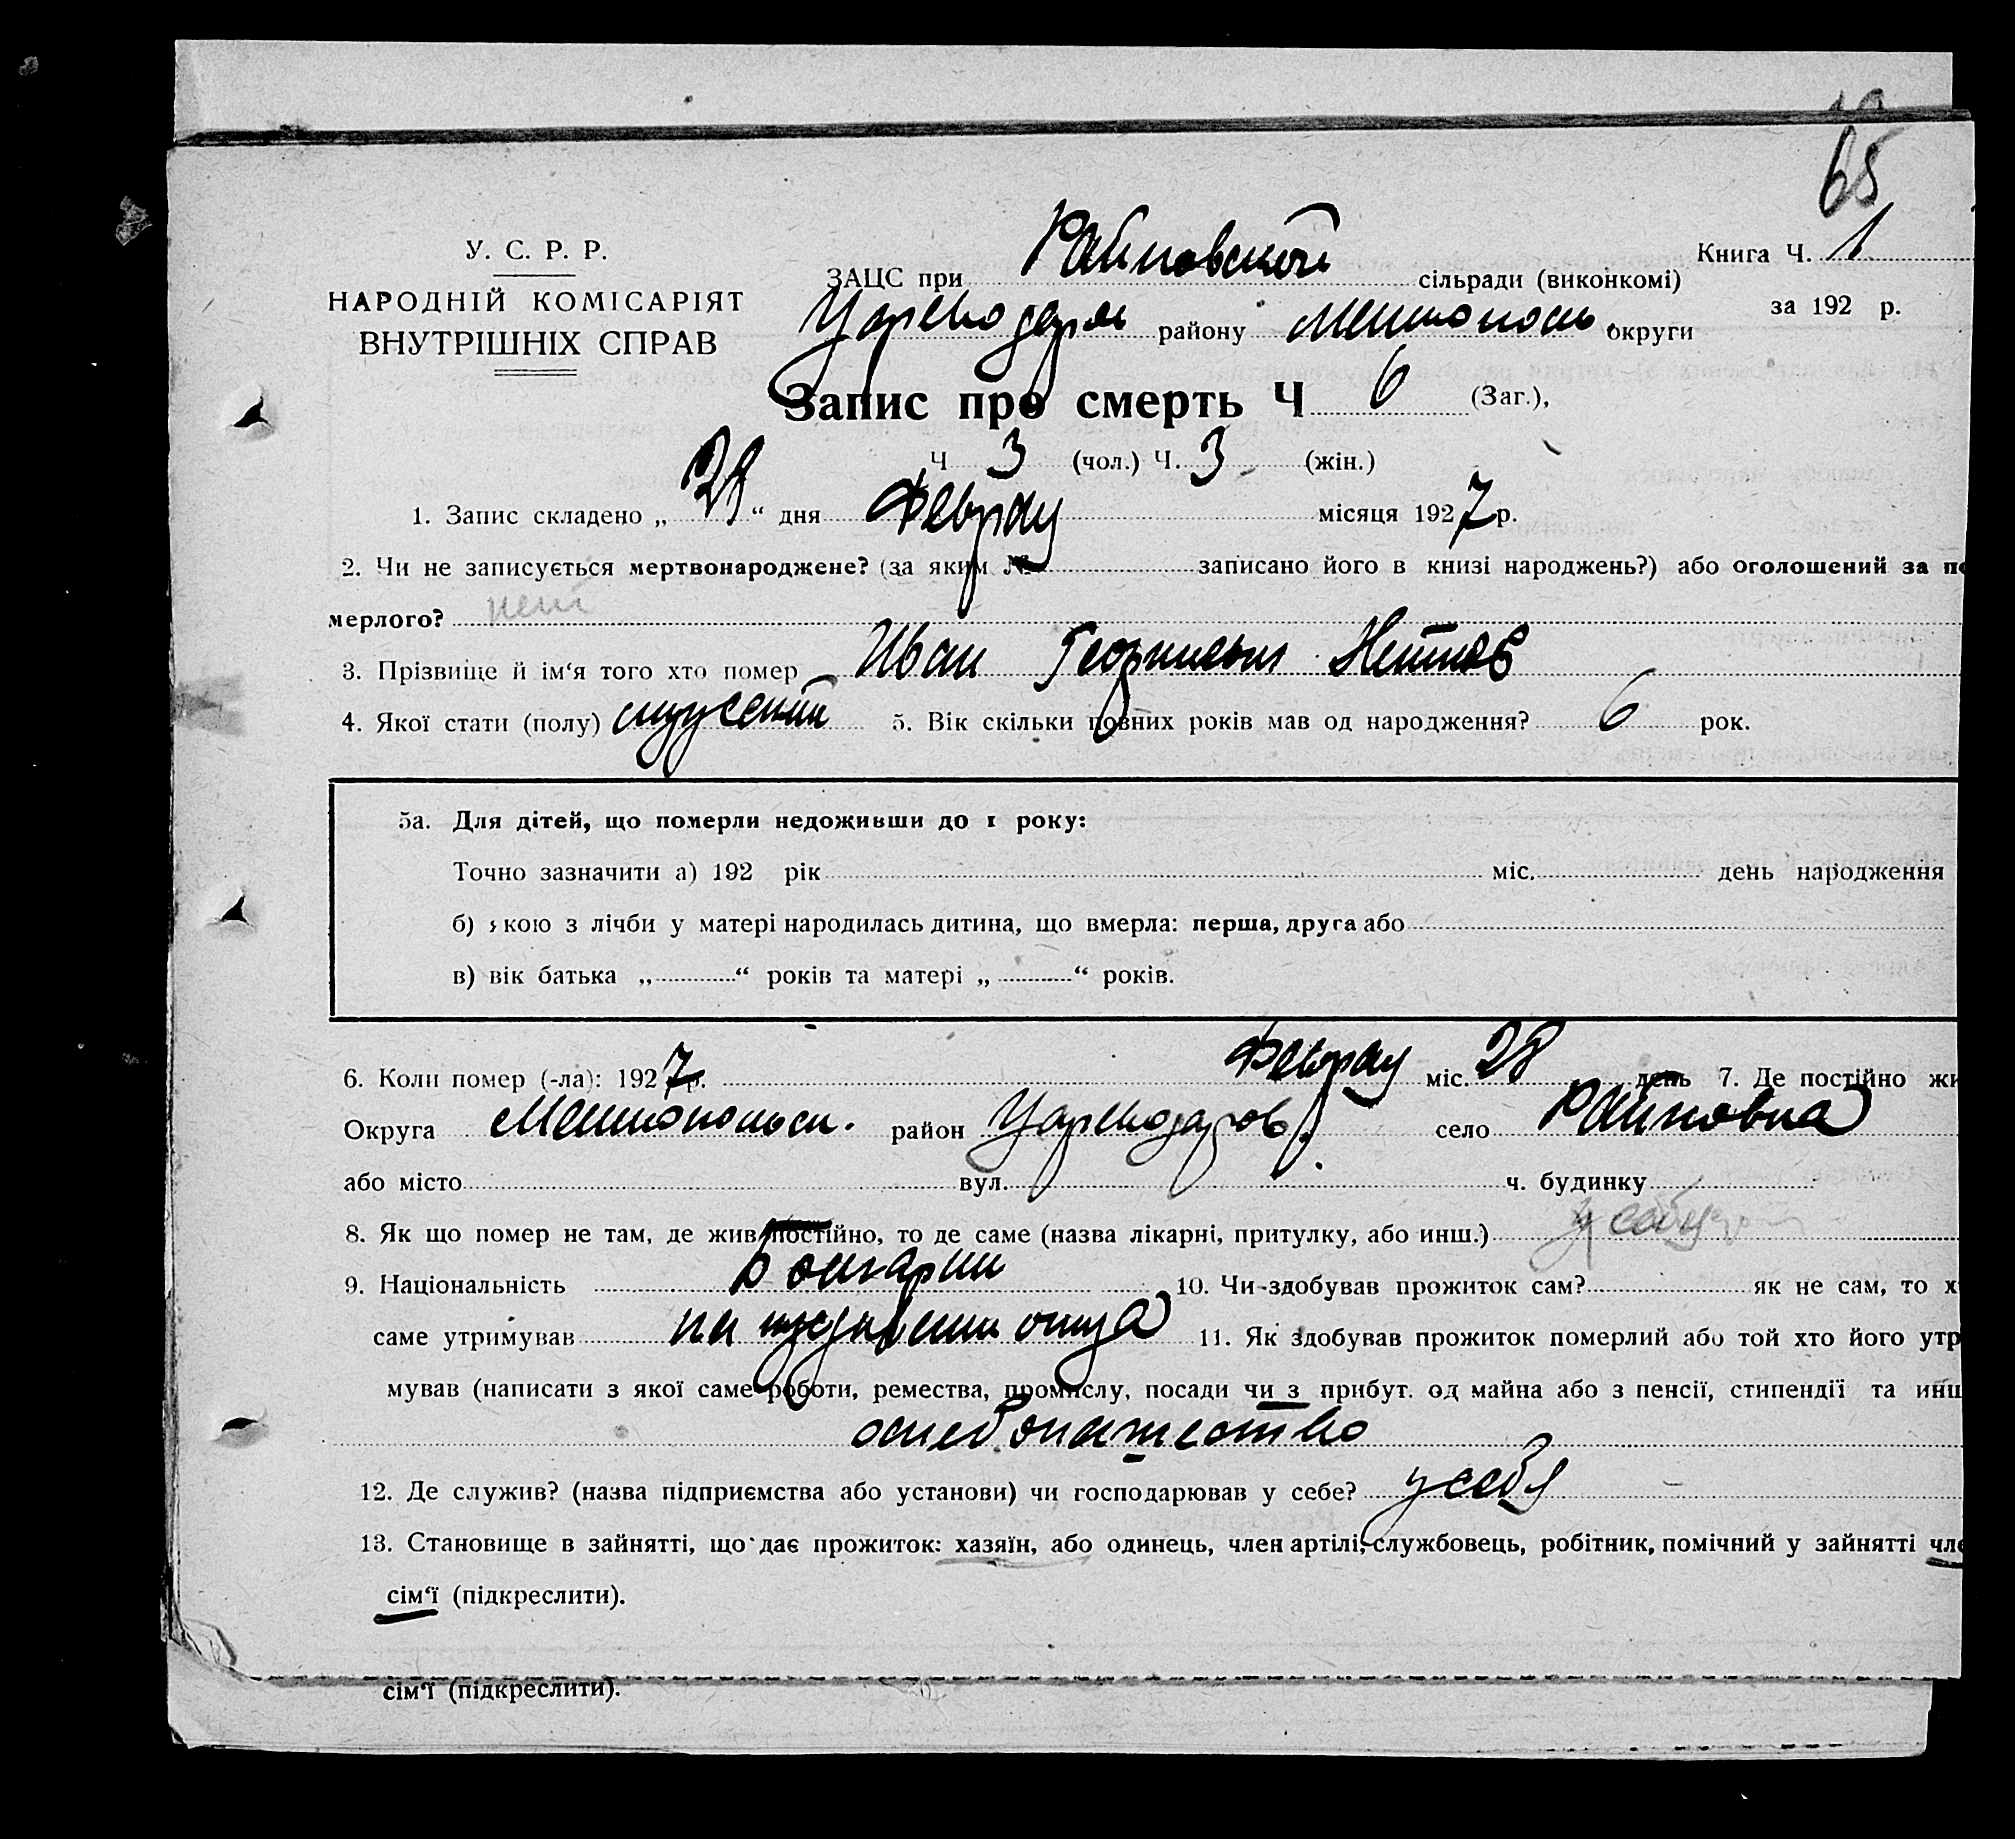 65
У. С. Р. Р.
НАРОДНІЙ КОМІСАРІЯТ
ВНУТРІШНІХ СПРАВ
ЗАЦС при Райновской сільради (виконкомі)
Книга Ч. 1
за 192 р.
району округи
Запис про смерть Ч 6 (Заг.),
Ч 3 (чол.) Ч. 3 (жін.)
1. Запис складено „ 28 “ дня Февраля місяця 1927 р.
2. Чи не записується мертвонароджене? (за яким № записано його в книзі народжень?) або оголошений за по
мерлого? нет
3. Прізвище й ім‘я того хто помер Иван Георгиевич
4. Якої стати (полу) мужский 5. Вік скільки повних років мав од народження? 6 рок.
5а. Для дітей, що померли недоживши до 1 року:
Точно зазначити а) 192 рік міс. день народження
б) якою з лічби у матері народилась дитина, що вмерла: перша, друга або
в) вік батька „ “ років та матері „ “ років.
6. Коли помер (-ла): 1927 р. Февраля міс. 28 день 7. Де постійно жи
Округа Мелитопольск. район Цареводаров. село Райновка
або місто вул. ч. будинку
8. Як що помер не там, де жив постійно, то де саме (назва лікарні, притулку, або инш.)
9. Національність Болгарин 10. Чи здобував прожиток сам? як не сам, то х
саме утримував на иждивении отца 11. Як здобував прожиток померлий або той хто його утр
мував (написати з якої саме роботи, ремества, промислу, посади чи з прибут. од майна або з пенсії, стипендії та инш
хлебопашество
12. Де служив? (назва підприємства або установи) чи господарював у себе? у себя
13. Становище в зайнятті, що дає прожиток: хазяїн, або одинець, член артілі, службовець, робітник, помічний у зайнятті чле
сім‘ї (підкреслити).
сім‘ї (підкреслити).